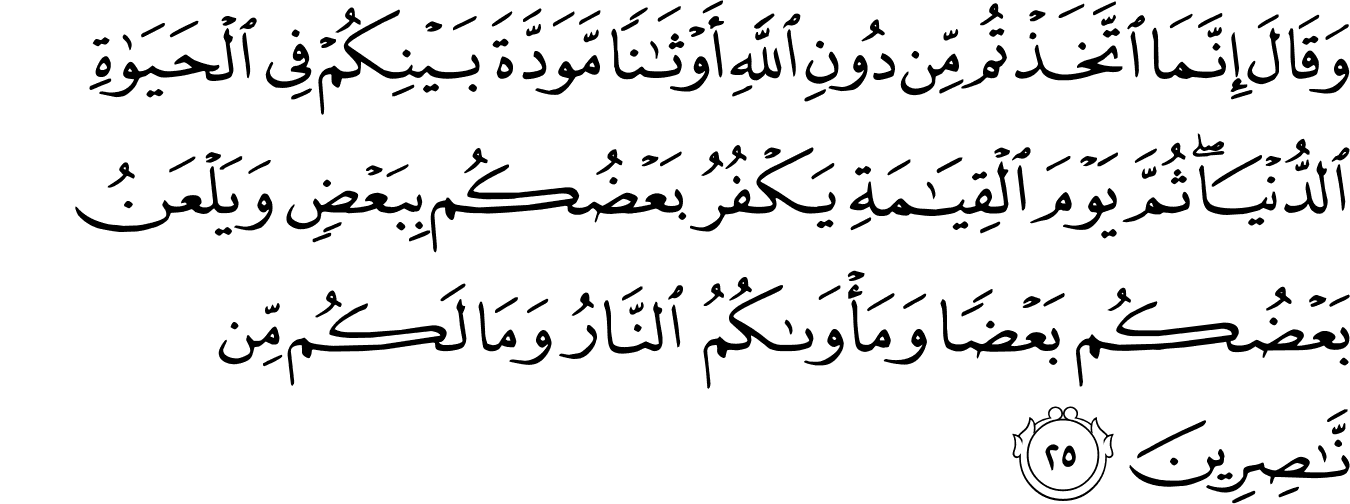 وَقَالَ إِنَّمَا ٱتَّخَذْتُم مِّن دُونِ ٱللَّهِ أَوْثَـٰنًا مَّوَدَّةَ بَيْنِكُمْ فِى ٱلْحَيَوٰةِ
ٱلدُّنْيَا ۖ ثُمَّ يَوْمَ ٱلْقِيَـٰمَةِ يَكْفُرُ بَعْضُكُم بِبَعْضٍ وَيَلْعَنُ
بَعْضُكُم بَعْضًا وَمَأْوَىٰكُمُ ٱلنَّارُ وَمَا لَكُم مِّن
نَّـٰصِرِينَ ٢٥